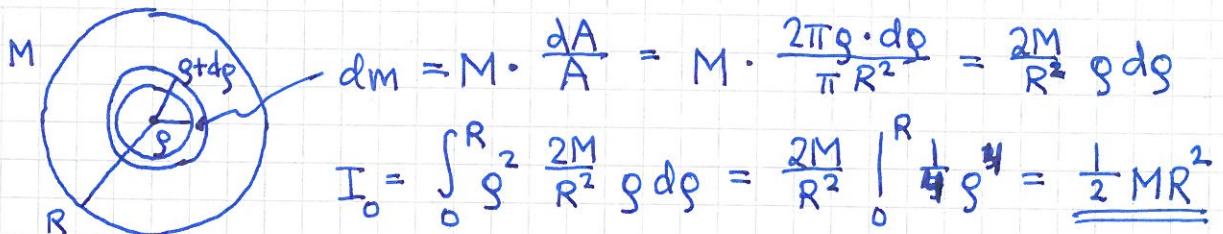 M
ρ+dρ
dm = M · dA/A = M · 2πρ·dρ/πR² = 2M/R² ρ dρ
ρ
I₀ = ∫₀ᴿ ρ² 2M/R² ρ dρ = 2M/R² |₀ᴿ 1/4 ρ⁴ = 1/2 MR²
R